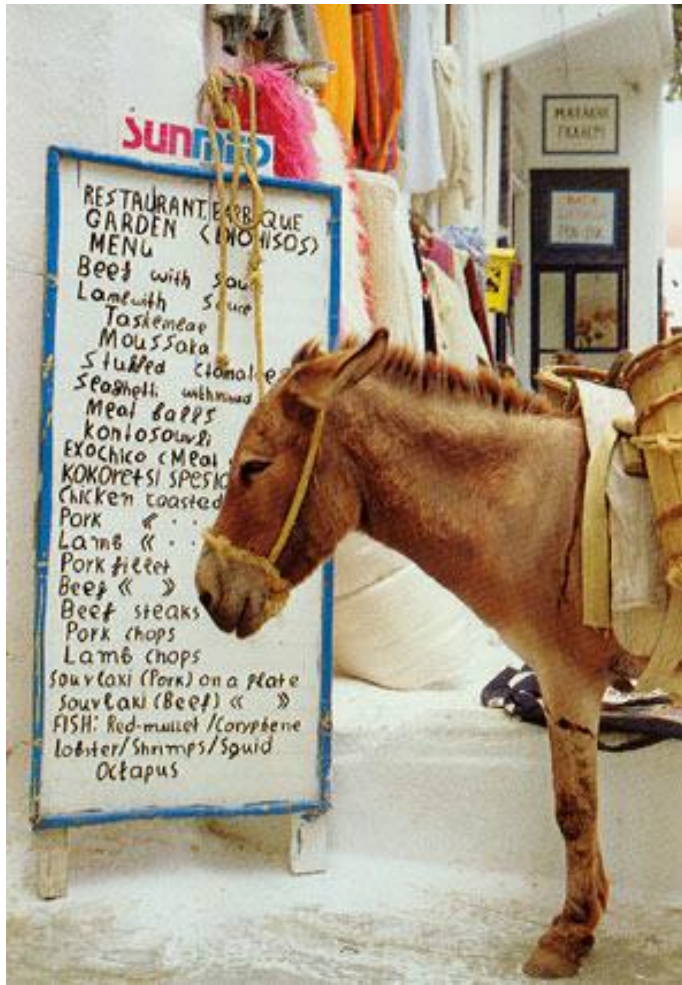 sunmed
RESTAURANT, BARBEQUE
GARDEN (DIOHISOS)
MENU
Beef with sauce
Lambwith sauce
Taskempae
Moussaka
Stuffed
Spaghetti
Meat balls
Kontosouvli
EXOchico (Meat
KOKORETSI SPESIC
Chicken roasted
Pork « · ·
Lamb « · ·
Pork fillet
Beef « »
Beef steaks
Pork chops
Lamb chops
Souvlaki (Pork) on a plate
Souvlaki (Beef) « »
FISH: Red-mullet / Coryphene
Lobster/Shrimps/Squid
Octapus